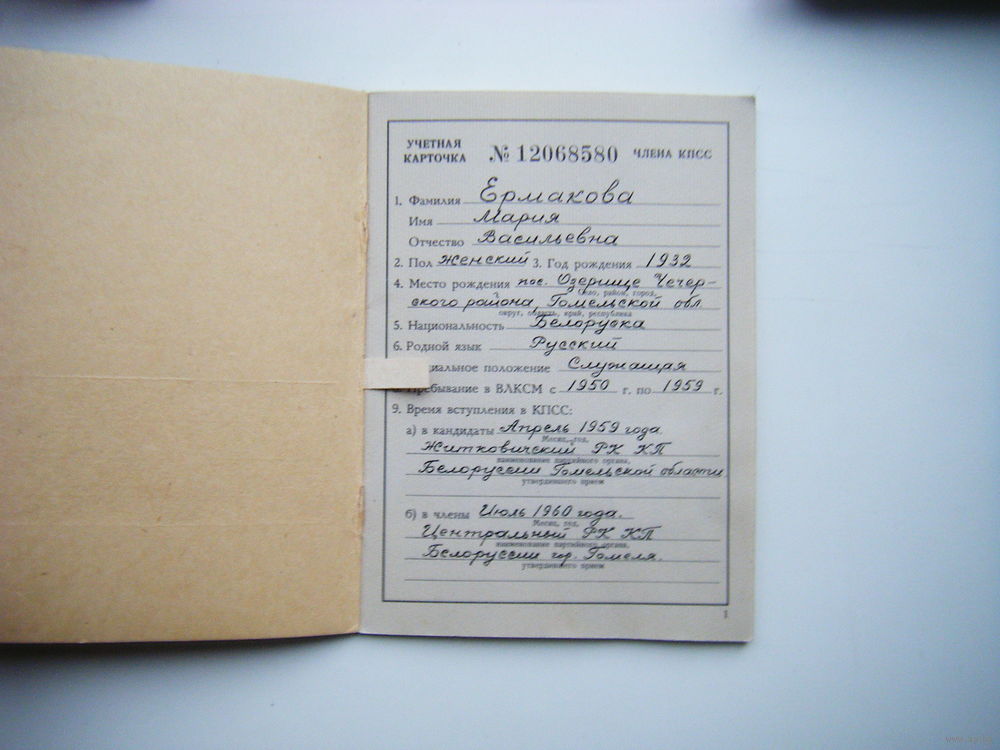 УЧЕТНАЯ КАРТОЧКА № 12068580 ЧЛЕНА КПСС
1. Фамилия Ермакова
Имя Мария
Отчество Васильевна
2. Пол Женский 3. Год рождения 1932
4. Место рождения пос. Озерище Чечер-
село, район, город,
ского района, Гомельской обл.
округ, область, край, республика
5. Национальность Белоруска
6. Родной язык Русский
иальное положение Служащая
Пребывание в ВЛКСМ с 1950 г. по 1959 г.
9. Время вступления в КПСС:
а) в кандидаты Апрель 1959 года.
Месяц, год,
Житковичский РК КП
наименование партийного органа,
Белоруссии Гомельской области
утвердившего прием
б) в члены Июль 1960 года.
Месяц, год,
Центральный РК КП
наименование партийного органа,
Белоруссии гор. Гомеля.
утвердившего прием
1